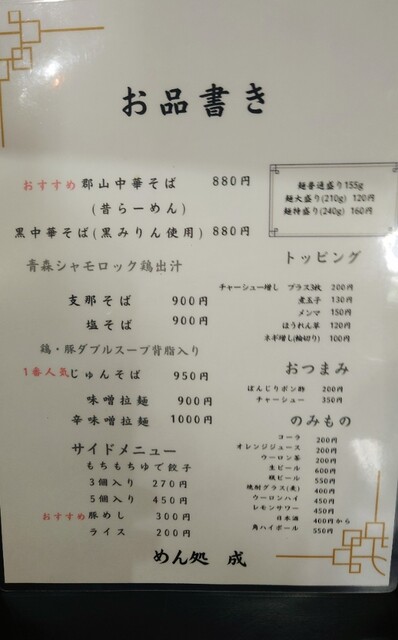 お品書き
おすすめ 郡山中華そば 880円
(昔らーめん)
黒中華そば(黒みりん使用) 880円
青森シャモロック鶏出汁
支那そば 900円
塩そば 900円
鶏・豚ダブルスープ背脂入り
1番人気 じゅんそば 950円
味噌拉麺 900円
辛味噌拉麺 1000円
サイドメニュー
もちもちゆで餃子
3個入り 270円
5個入り 450円
おすすめ 豚めし 300円
ライス 200円
麺普通盛り155g
麺大盛り(210g) 120円
麺特盛り(240g) 160円
トッピング
チャーシュー増し プラス3枚 200円
煮玉子 130円
メンマ 150円
ほうれん草 120円
ネギ増し(輪切り) 100円
おつまみ
ぼんじりポン酢 200円
チャーシュー 350円
のみもの
コーラ 200円
オレンジジュース 200円
ウーロン茶 200円
生ビール 600円
瓶ビール 550円
焼酎グラス(麦) 400円
ウーロンハイ 450円
レモンサワー 450円
日本酒 400円から
角ハイボール 550円
めん処 成